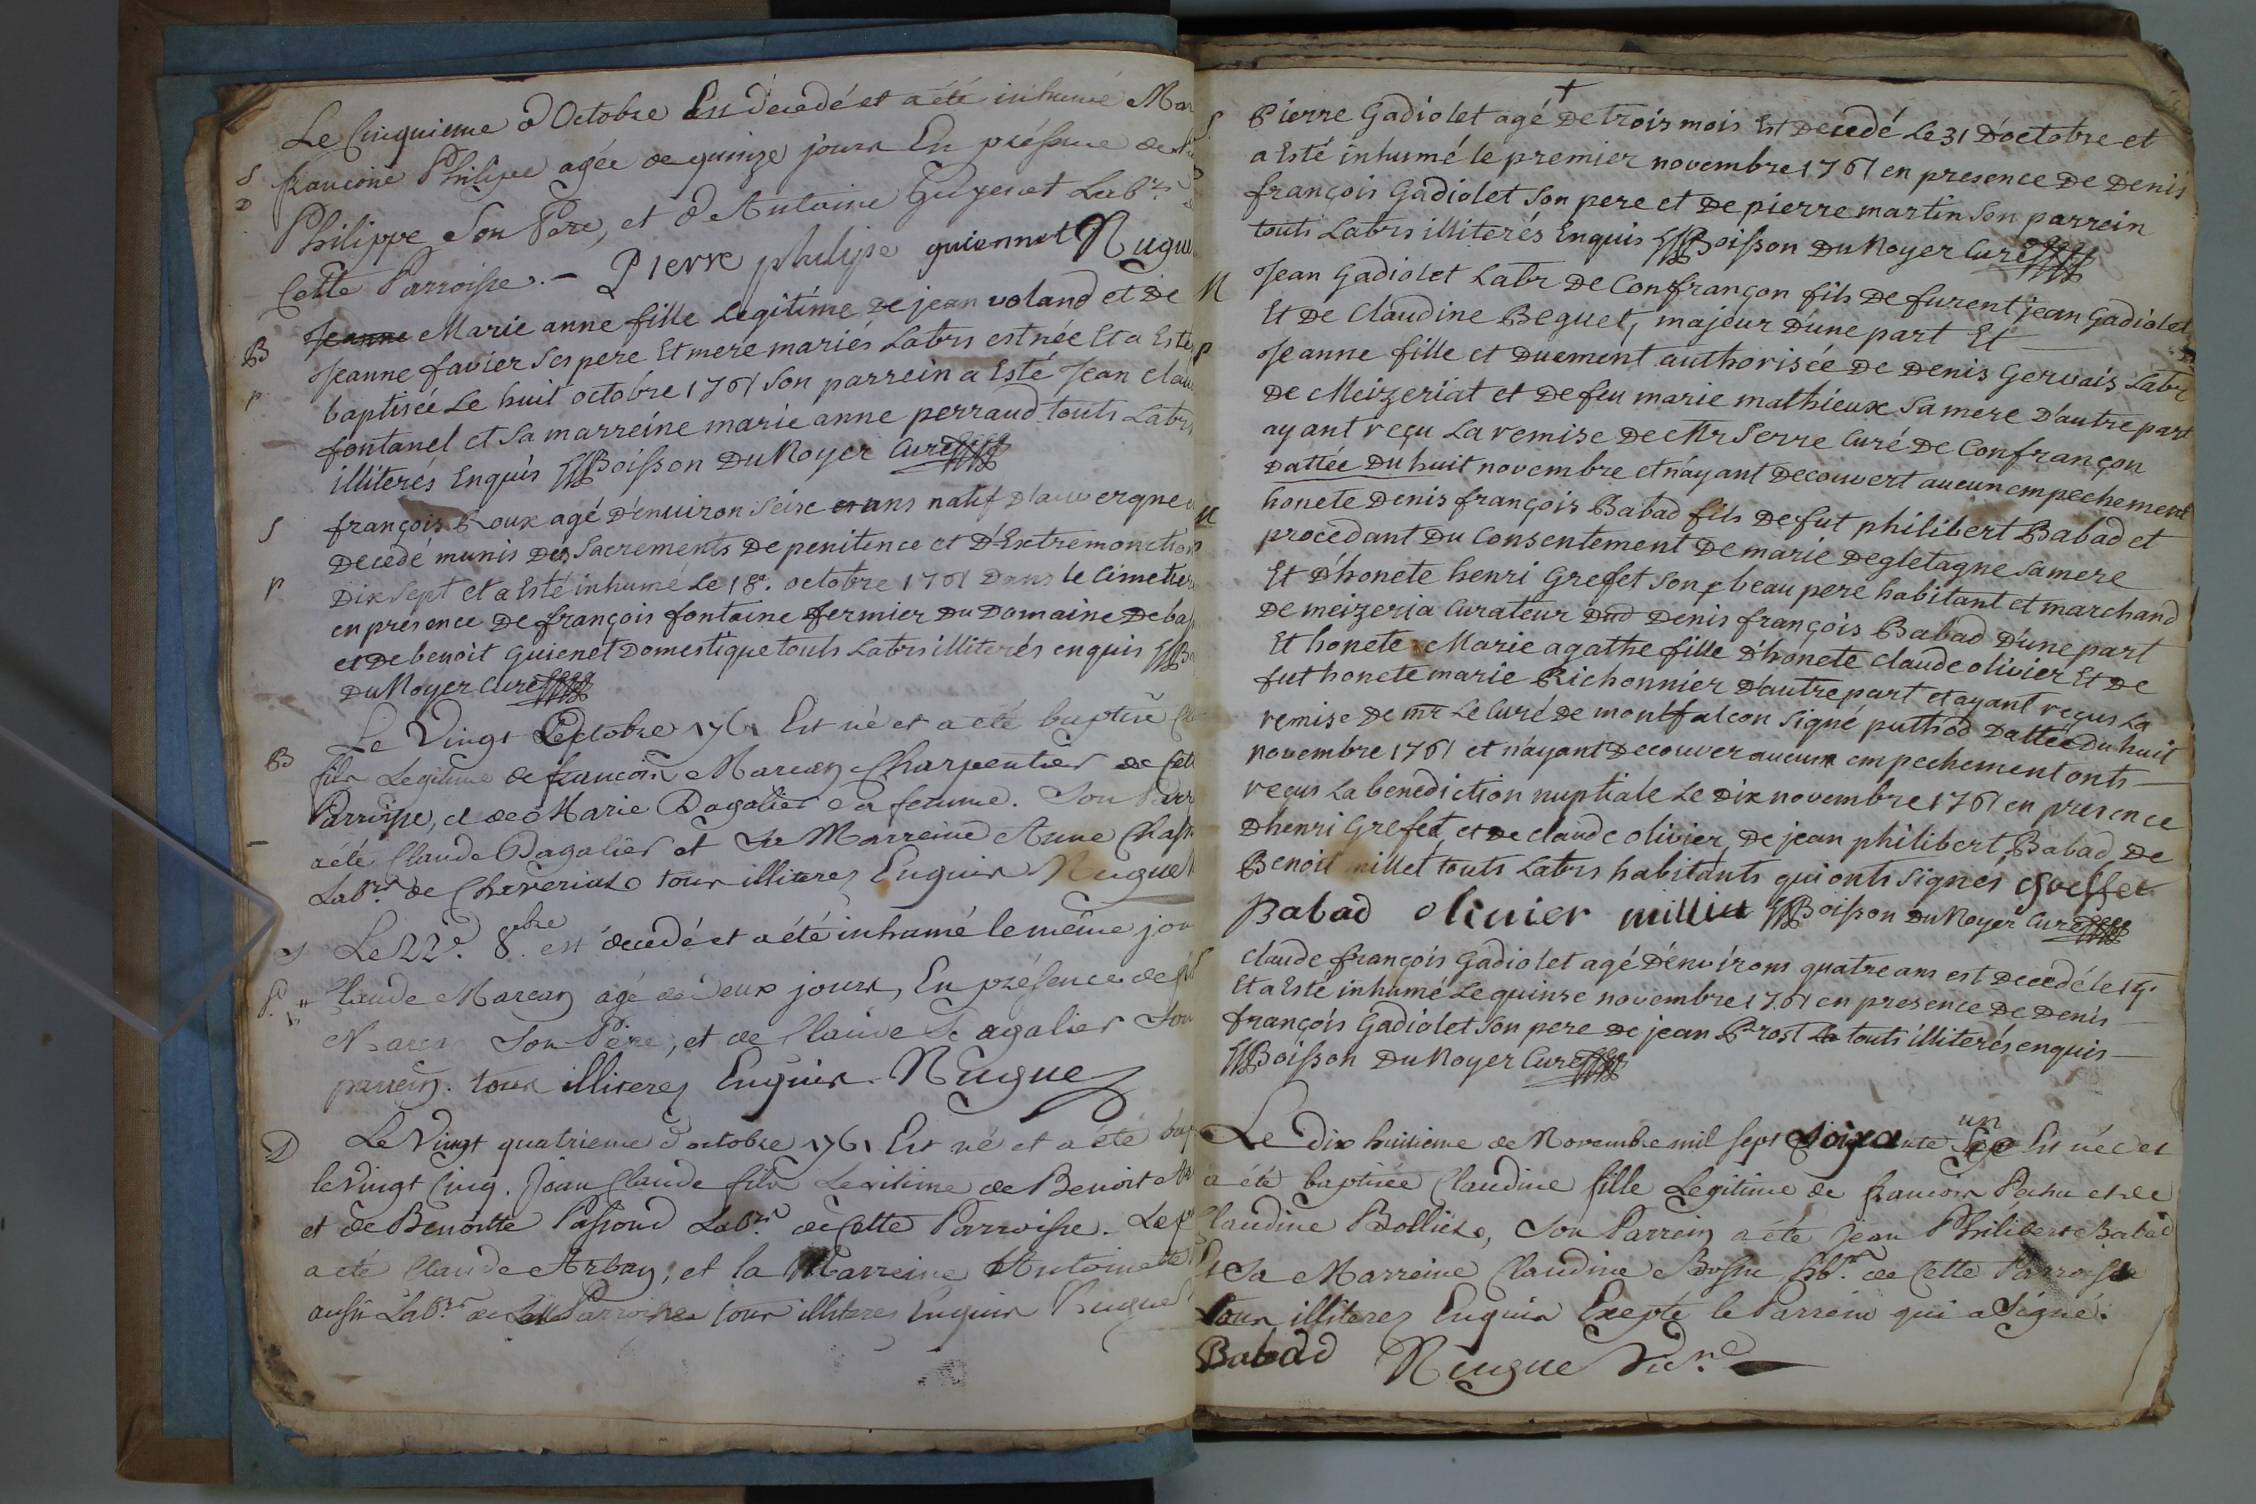 Le Cinquieme d'Octobre Est décedé et a été inhumé Mar
francoise Philippe agée de quinze jours En présence de
Philippe Son Pere, et d'Antoine Guyenet Labrs
Cette Parroisse. — Pierre philipe guiennet Nugue
Jeanne Marie anne fille Legitime De jean voland et De
Jeanne favier Ses pere Et mere mariés Labrs est née Et a Esté
baptisée Le huit octobre 1761 Son parrein a Esté Jean Clau
fontanel et Sa marreine marie anne perraud touts Labrs
illiterés Enquis Boisson Du Noyer Curé
françois Roux agé D'enuiron Seise ans natif D'auvergne
Decedé munis Des Sacrements De penitence et D'Extremonction
Dix Sept et a Esté inhumé Le 18e. octobre 1761 Dans le Cimetier
en presence De françois fontaine fermier Du Domaine De ba
et De benoit Guienet Domestique touts Labrs illiterés enquis Bo
Du Noyer Curé
Le Vingt Octobre 1761 Est né et a été baptisé Cl
fils Legitime de francois Marcan Charpentier de Cett
Parroisse, et de Marie Dagalier Sa femme. Son Parr
a été Claude Dagalier et Sa Marreine Anne Chass
Labrs de Chaveriat tous illiteres Enquis Nugue
Le 22e. 8bre est decedé et a été inhumé le même jou
Claude Marcan agé de Deux jours, En présence de f
Marcan Son Pere, et de Claude Dagalier Son
parrein. tous illiteres Enquis. Nugue
Le Vingt quatrieme d'octobre 1761 Est né et a été bap
le vingt Cinq. Jean Claude fils Legitime de Benoit Ar
et de Benoitte Passoud Labrs de Cette Parroisse. Le p
a été Claude Arban, et la Marreine Antoinette
aussi Labrs de Cette Parroisse tous illiteres Enquis Nugue
Pierre Gadiolet agé De trois mois Est Decedé Le 31 D'octobre et
a Esté inhumé le premier novembre 1761 en presence De Denis
françois Gadiolet Son pere et De pierre martin Son parrein
touts Labrs illiterés Enquis Boisson Du Noyer Curé
Jean Gadiolet Labr De Confrançon fils De furent jean Gadiolet
Et De Claudine Beguet, majeur D'une part Et
Jeanne fille et Duement authorisée De Denis Gervais Labr
De Meizeriat et De feu marie mathieux Sa mere D'autre part
ayant reçu La remise De Mr Serre Curé De Confrançon
Dattée Du huit novembre et n'ayant Decouvert aucun empechement
honete Denis françois Babad fils De fut philibert Babad et
procedant Du Consentement De marie Degletagne Sa mere
Et D'honete henri Grefet Son beau pere habitant et marchand
De meizeria Curateur Dud Denis françois Babad D'une part
Et honete Marie agathe fille D'honete Claude olivier Et De
fut honete marie Richonnier D'autre part et ayant reçus La
remise De mr Le Curé De montfalcon Signé puthod Dattée Du huit
novembre 1761 et n'ayant Decouver aucun empechement onts
reçus La benediction nuptiale Le Dix novembre 1761 en presence
D'henri Grefet, et De claude olivier, De jean philibert Babad De
Benoit millet touts Labrs habitants qui onts Signés Greffet
Babad olivier milliet Boisson Du Noyer Curé
Claude françois Gadiolet agé D'environs quatre ans est Decedé le 15.
Et a Esté inhumé Le quinse novembre 1761 en presence De Denis
françois Gadiolet Son pere De jean Prost La touts illiterés enquis
Boisson Du Noyer Curé
un
Le dix huitieme de Novembre mil sept soixante Est née et
a été baptisée Claudine fille Legitime de francois Pachu et de
Claudine Bollier, Son Parrein a été Jean Philibert Babad
Et Sa Marreine Claudine Bossu Labrs de Cette Parroisse
tous illiteres Enquis Excepté le Parrein qui a Signé.
Babad Nugue Vic.re